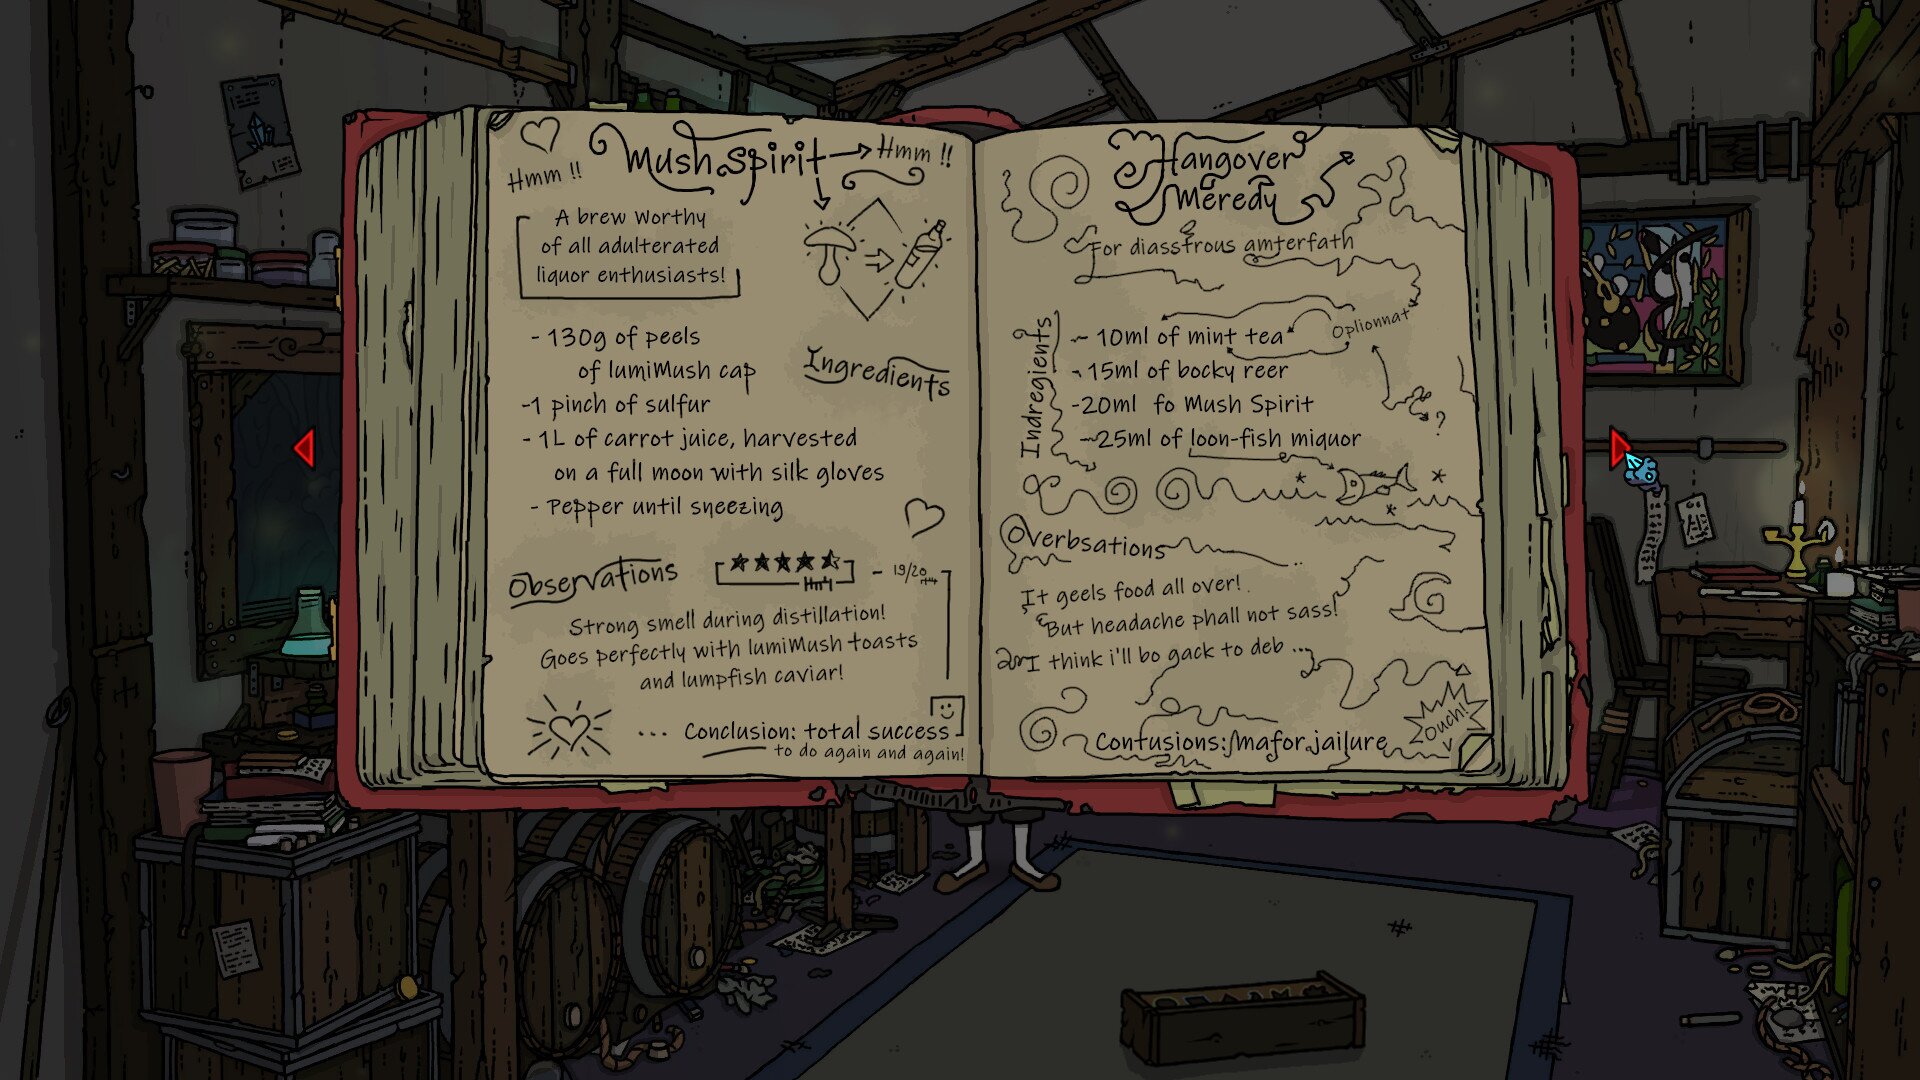 Hmm !!
Mush Spirit
Hmm !!
A brew worthy
of all adulterated
liquor enthusiasts!
- 130g of peels
of lumiMush cap
-1 pinch of sulfur
- 1L of carrot juice, harvested
on a full moon with silk gloves
- Pepper until sneezing
Ingredients
Observations
- 19/20
Strong smell during distillation!
Goes perfectly with lumiMush toasts
and lumpfish caviar!
... Conclusion: total success
to do again and again!
Hangover
Meredy
For diasstrous amterfath
Indregients
- 10ml of mint tea
Oplionnat
- 15ml of bocky reer
?
-20ml fo Mush Spirit
-25ml of loon-fish miquor
Overbsations
It geels food all over!
But headache phall not sass!
I think i'll bo gack to deb ...
Ouch!
Confusions: mafor jailure